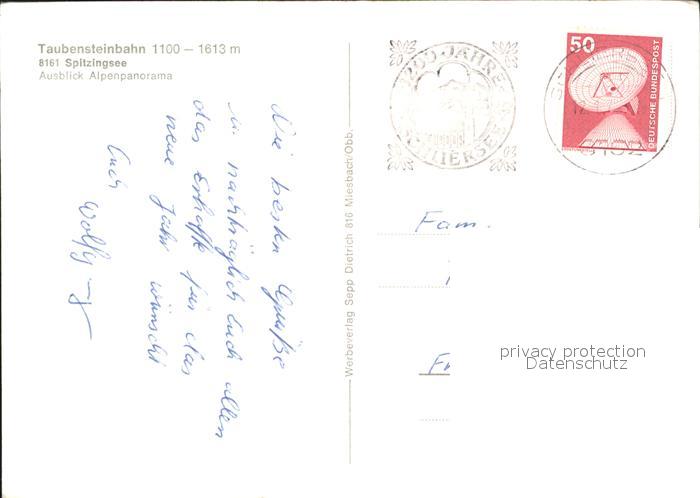 Taubensteinbahn 1100 – 1613 m
8161 Spitzingsee
Ausblick Alpenpanorama
Die besten Grüße
u. nachträglich Euch allen
das Erhoffte für das
neue Jahr wünscht
Euch
Wolfg
Werbeverlag Sepp Dietrich 816 Miesbach/Obb.
1200 JAHRE
SCHLIERSEE
50
DEUTSCHE BUNDESPOST
Fam.
privacy protection
Datenschutz